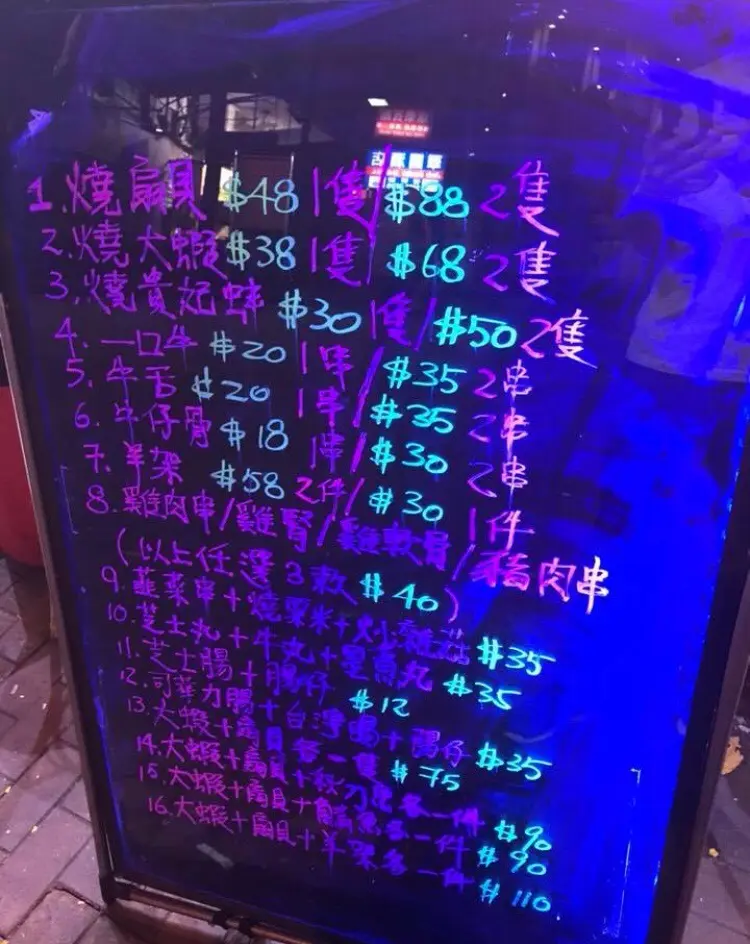 1. 燒扇貝 $48 1隻/$88 2隻
2. 燒大蝦 $38 1隻/$68 2隻
3. 燒貴妃蚌 $30 1隻/$50 2隻
4. 一口牛 $20 1串/$35 2串
5. 牛舌 $20 1串/$35 2串
6. 牛仔骨 $18 1串/$30 2串
7. 羊架 $58 2件/$30 1件
8. 雞肉串/雞腎/雞軟骨/豬肉串
(以上任選3款 $40)
9. 韮菜串+燒粟米+炒雜菇 $35
10. 芝士丸+牛丸+墨魚丸 $35
11. 芝士腸+腸仔 $12
12. 司華力腸+台灣腸+腸仔 $35
13. 大蝦+扇貝各一隻 $75
14. 大蝦+扇貝+秋刀魚各一件 $90
15. 大蝦+扇貝+魚各一件 $90
16. 大蝦+扇貝+羊架各一件 $110